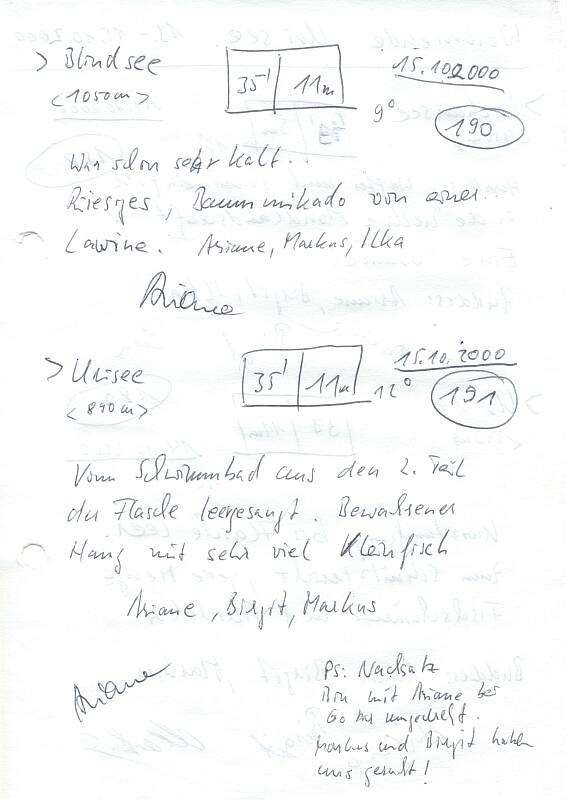 > Blindsee
35' 11m
15.10.2000
<1050m>
9°
190
War schon sehr kalt..
Riesiges, Baummikado von einer
Lawine. Ariane, Markus, Ilka
Ariane
> Urisee
35' 11m
15.10.2000
12°
191
<840m>
Vom Schwimmbad aus den 2. Teil
der Flasche leergesaugt. Bewachsener
Hang mit sehr viel Kleinfisch
Ariane, Birgit, Markus
Ariane
PS: Nachsatz
Bin mit Ariane bei
60 bar umgedreht.
Markus und Birgit haben
uns gesucht!